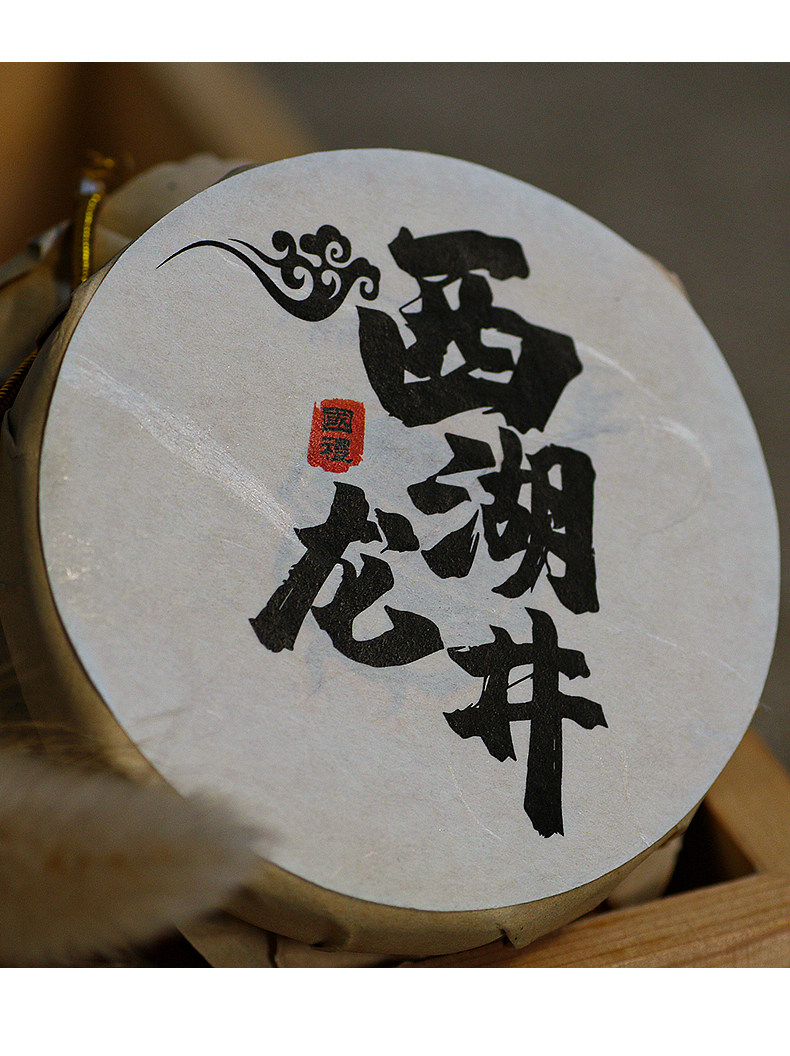 西湖
龙井
國禮